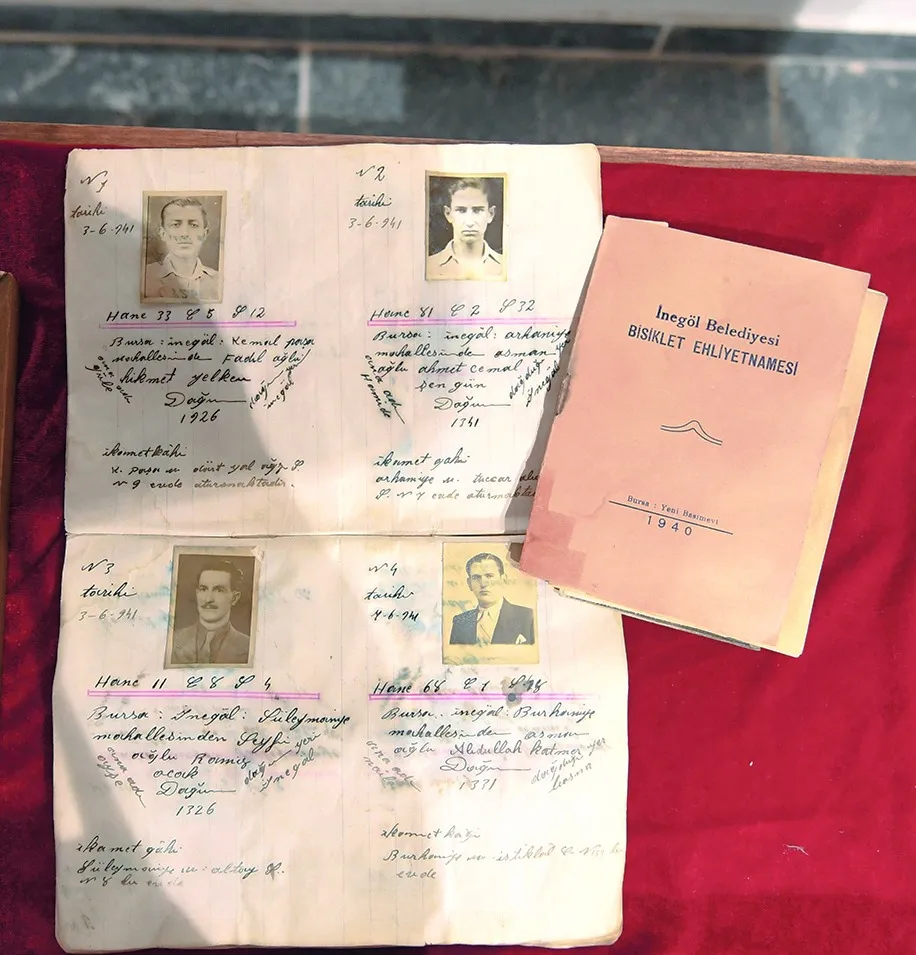 N 1
tarihi
3-6-941
Hane 33 C 5 S 12
Bursa : inegöl : Kemal paşa
mahallesinde Fadıl oğlu
hikmet yelken
Doğum
1926
ana adı
doğum yeri
inegöl
ikametkâhi
K. paşa m. dört yol ağzı S.
N 9 evde oturmaktadır.
N 2
tarihi
3-6-941
Hane 81 C 2 S 32
Bursa : inegöl : orhaniye
mahallesinde osman
oğlu ahmet cemal
şen gün
Doğum
1341
ana adı
Hamide
doğduğu yer
İnegöl
ikamet gahi
orhaniye m. tuccar
S. N 7 evde oturmakta
N 3
tarihi
3-6-941
Hane 11 C 8 S 4
Bursa : İnegöl : Süleymaniye
mahallesinden Seyfi
oğlu Ramiz
ocak
Doğum
1326
ana adı
ayşe
doğum yeri
İnegöl
ikamet gâhi
Süleymaniye m : altay S.
N 8 bu evde
N 4
tarihi
4-6-941
Hane 68 C 1 S 28
Bursa : inegöl : Burhaniye
mahallesinden osman
oğlu Abdullah Katmer
Doğum
1331
ana adı
doğduğu yer
ikamet kağı
Burhaniye m. istiklal C.
evde
İnegöl Belediyesi
BİSİKLET EHLİYETNAMESİ
Bursa : Yeni Basımevi
1940